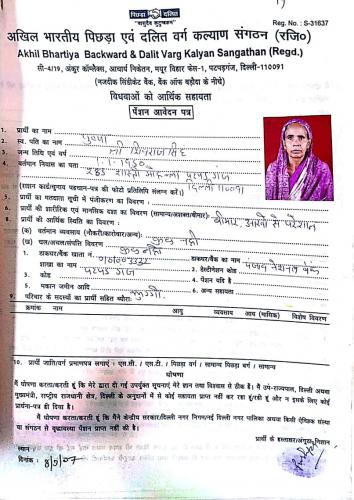 पिछड़ा दलित
"वसुधैव कुटुम्बकम्"
Reg. No. : S-31637
अखिल भारतीय पिछड़ा एवं दलित वर्ग कल्याण संगठन (रजि०)
Akhil Bhartiya Backward & Dalit Varg Kalyan Sangathan (Regd.)
सी-4/19, अंकुर कॉम्प्लैक्स, आचार्य निकेतन, मयूर विहार फेस-1, पटपड़गंज, दिल्ली-110091
(नजदीक सिंडीकेट बैंक, बैंक ऑफ बड़ौदा के नीचे)
विधवाओं को आर्थिक सहायता
पेंशन आवेदन पत्र
1. प्रार्थी का नाम पुष्पा
2. स्व. पति का नाम श्री शिवराज सिंह
3. जन्म तिथि एवं वर्ष 1-1-1940
4. वर्तमान निवास का पता 283 शास्त्री मोहल्ला पटपड़ गंज
दिल्ली 110091
(राशन कार्ड/चुनाव पहचान-पत्र की फोटो प्रतिलिपि संलग्न करें।)
5. प्रार्थी का मतदाता सूची में पंजीकरण का विवरण :
6. प्रार्थी की शारीरिक एवं मानसिक दशा का विवरण (सामान्य/अशक्त/बीमार): बीमार, आंखो से परेशान
7. प्रार्थी की आर्थिक स्थिति का विवरण :
(क) वर्तमान व्यवसाय (नौकरी/कारोबार/अन्य): कुछ नही
(ख) चल/अचल/संपत्ति विवरण : कुछ नही
1. डाकघर/बैंक खाता नं.
डाकघर/बैंक का नाम पंजाब नेशनल बैंक
शाखा का नाम
2. डेस्टीनेशन कोड
3. कोड पटपड़ गंज
4. पेंशन यदि है
5. मकान जमीन आदि
6. अन्य सहायता
9. परिवार के सदस्यों का प्रार्थी सहित ब्योरा: झुग्गी
क्रमांक नाम आयु व्यवसाय आय (मासिक) विशेष विवरण
10. प्रार्थी जाति/वर्ग प्रमाणपत्र लगाएं : एस.सी. / एस.टी. / पिछड़ा वर्ग / सामान्य पिछड़ा वर्ग / सामान्य
घोषणा
मैं घोषणा करता/करती हूं कि मेरे द्वारा दी गई उपर्युक्त सूचनाएं मेरे ज्ञान तथा विश्वास से ठीक है। मैं उप-राज्यपाल, दिल्ली अथवा
मुख्यमंत्री, राष्ट्रीय राजधानी क्षेत्र, दिल्ली के अनुदानों में से कोई सहायता प्राप्त नहीं कर रहा हूं/रही हूं और न इसके लिए कोई
प्रार्थना-पत्र ही दिया है।
मैं घोषणा करता/करती हूं कि मैंने केन्द्रीय सरकार/दिल्ली नगर निगम/नई दिल्ली नगर पालिका अथवा किसी ऐच्छिक संस्था
या संगठन से वृद्धावस्था पेंशन प्राप्त नहीं की है।
प्रार्थी के हस्ताक्षर/अंगूठा निशान
स्थान
दिनांक: 8/9/07